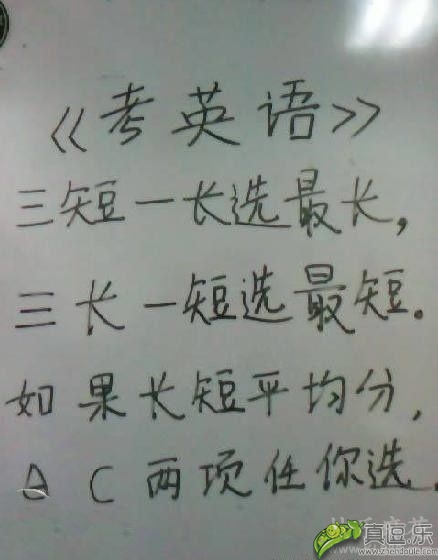 《考英语》
三短一长选最长，
三长一短选最短。
如果长短平均分，
A C 两项任你选．
真逗.乐
www.zhendoule.com